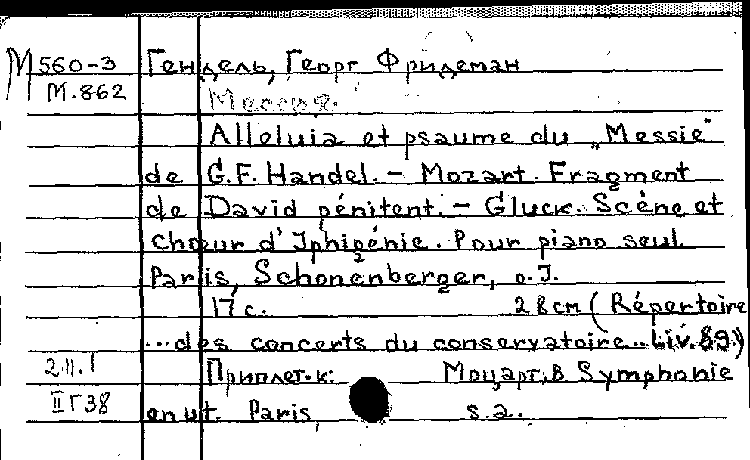 М560-3 Гендель, Георг Фридеман
М.862 Мессия.
Alleluia et psaume du „Messie"
de G.F. Handel. – Mozart. Fragment
de David pénitent. – Gluck. Scène et
chœur d'Iphigénie. Pour piano seul.
Paris, Schonenberger, o.J.
17 с. 28 см (Répertoire
...des concerts du conservatoire.. Liv. 89.)
2.11.1 Приплет. к: Моцарт, В Symphonie
II Г 38 en ut. Paris, s.a.